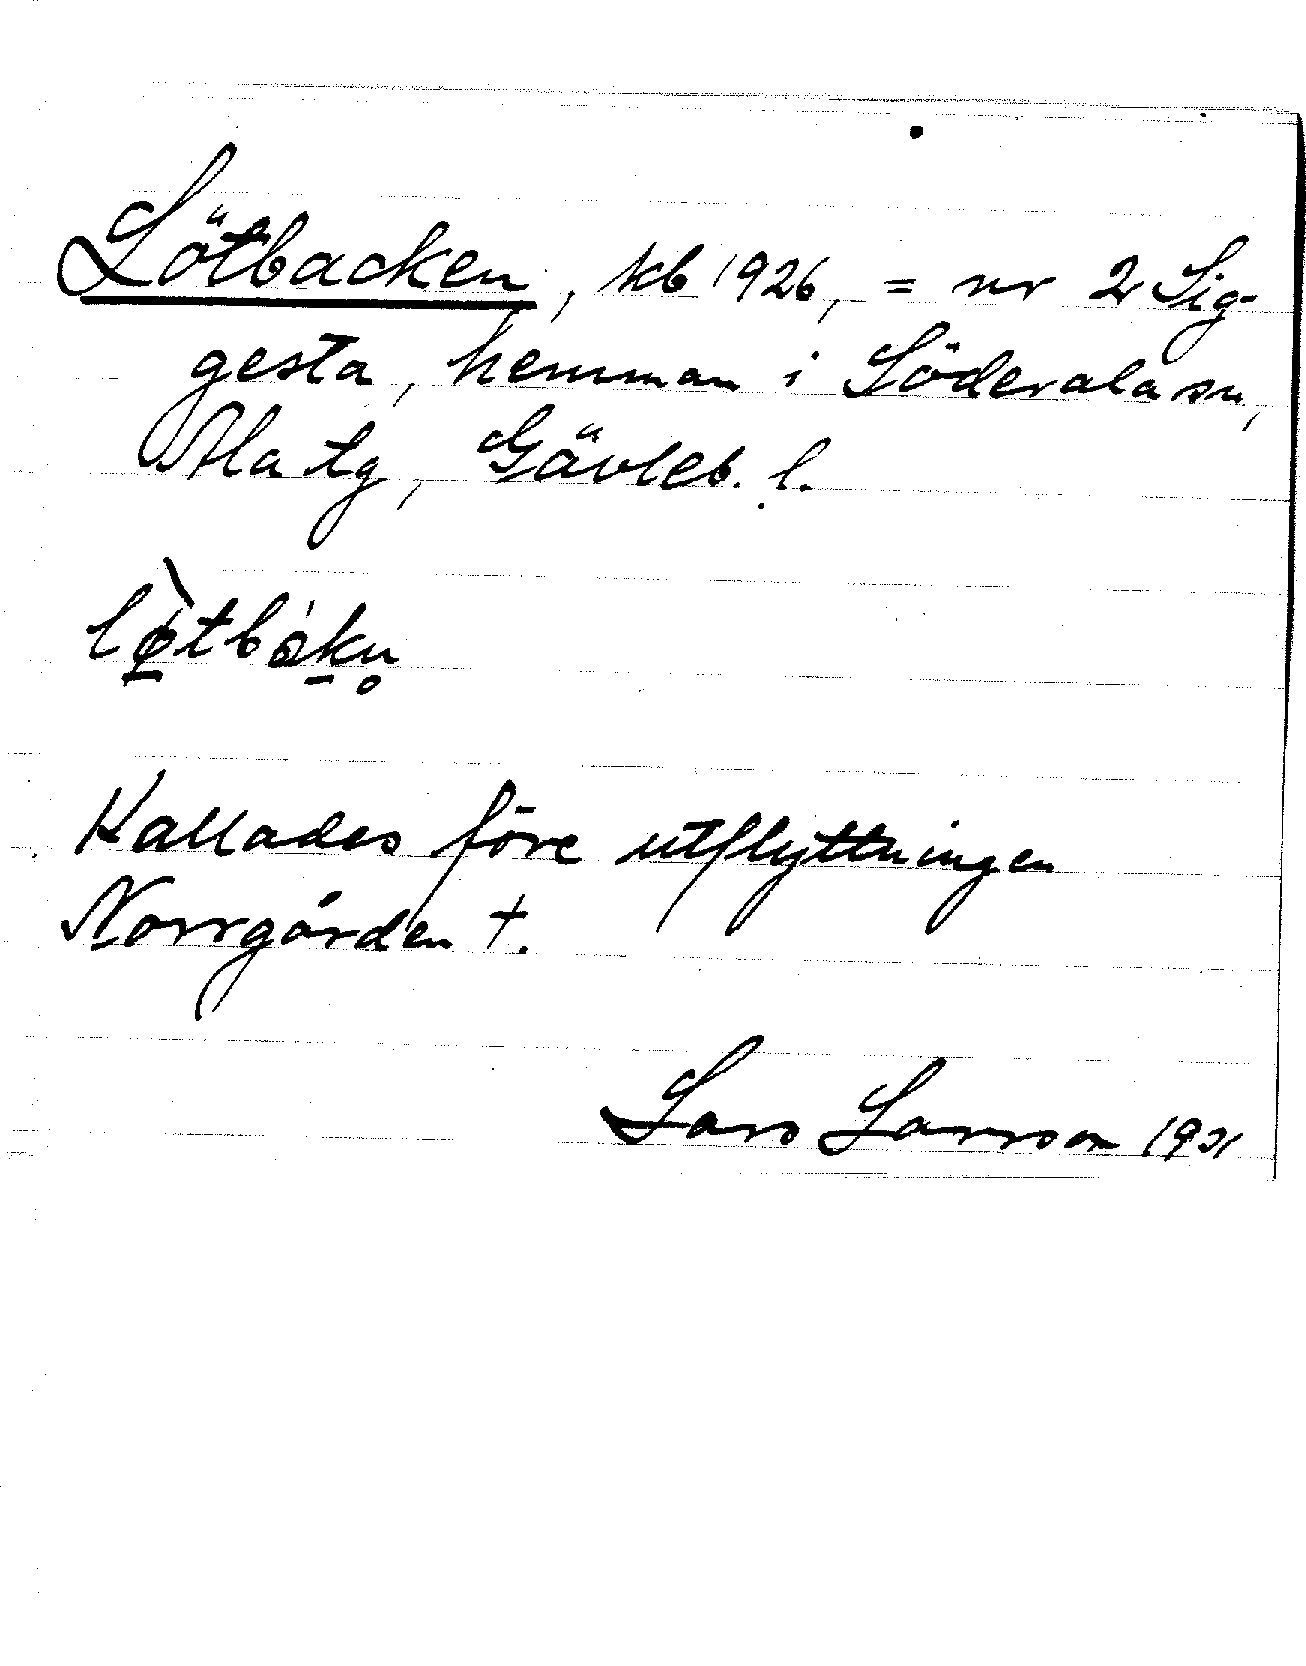 Lötbacken, kb 1926, = nr 2 Sig-
gesta, hemman i Söderala sn,
Ala tg, Gävleb. l.
Kallades före utflyttningen
Norrgården †.
Lars Larsson